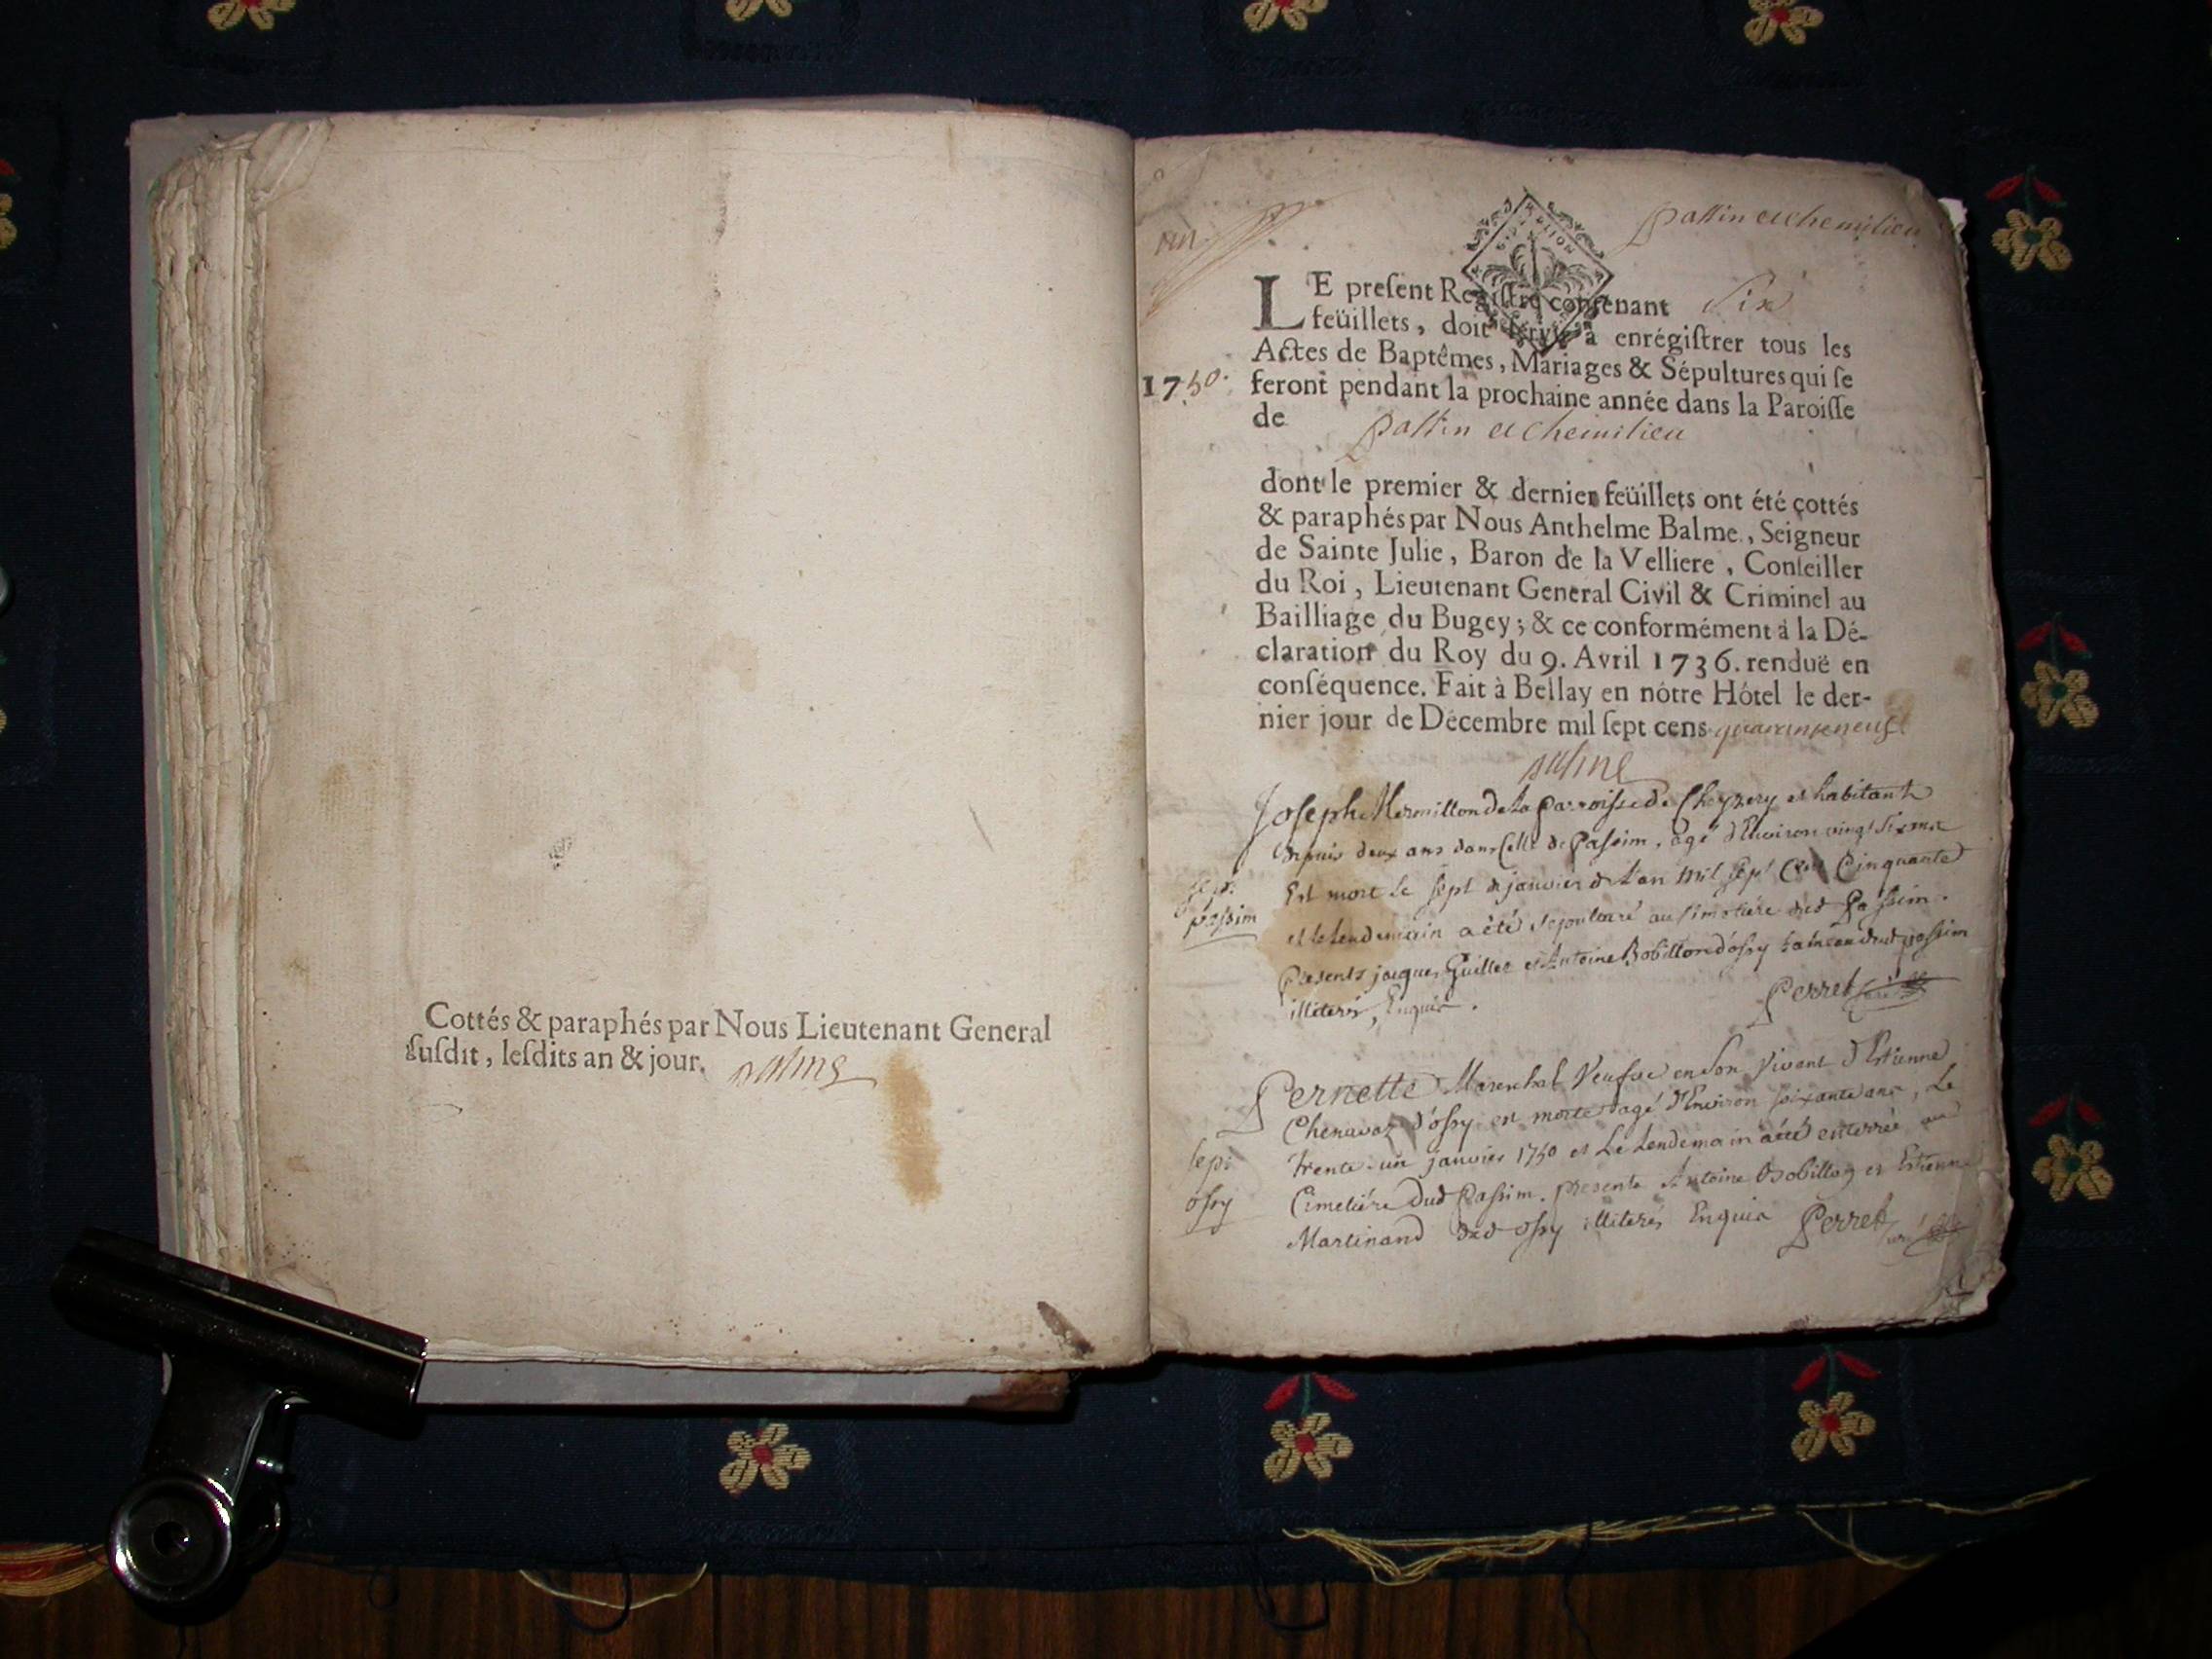 Cottés & paraphés par Nous Lieutenant General
ſuſdit, leſdits an & jour. Balme
un.
passin et chemilieu
LE preſent Regiſtre contenant Six
feüillets, doit ſervir à enrégiſtrer tous les
Actes de Baptêmes, Mariages & Sépultures qui ſe
1750. feront pendant la prochaine année dans la Paroiſſe
de passin et chemilieu
dont le premier & dernier feüillets ont été cottés
& paraphés par Nous Anthelme Balme, Seigneur
de Sainte Julie, Baron de la Velliere, Conſeiller
du Roi, Lieutenant General Civil & Criminel au
Bailliage du Bugey; & ce conformément à la Dé-
claration du Roy du 9. Avril 1736. renduë en
conſéquence. Fait à Bellay en nótre Hôtel le der-
nier jour de Décembre mil ſept cens quaranteneuf
Balme
Joseph Mermillon de La parroisse de Cheyzery et habitant
depuis deux ans dans Celle de Passim, agé d'Environ vingt six ans
Est mort le sept de janvier de L'an Mil sept Cent Cinquante
sep.
passim
et le Lendemain a été sepulturé au Simetiere dud Passim.
Presents jacques Guillet et Antoine Bobillon d'ossy dud passim
illiterés, Enquis. Perret curé
Pernette Mareschal Veufve en Son Vivant d'Estienne
Chenavaz d'ossy est morte agé d'Environ soixante ans, Le
trente-un janvier 1750 et Le Lendemain a été enterrée au
sep.
ossy
Cimetiére Dud Passim. presents Antoine Bobillon et Estienne
Martinand dud ossy illiterés Enquis Perret curé